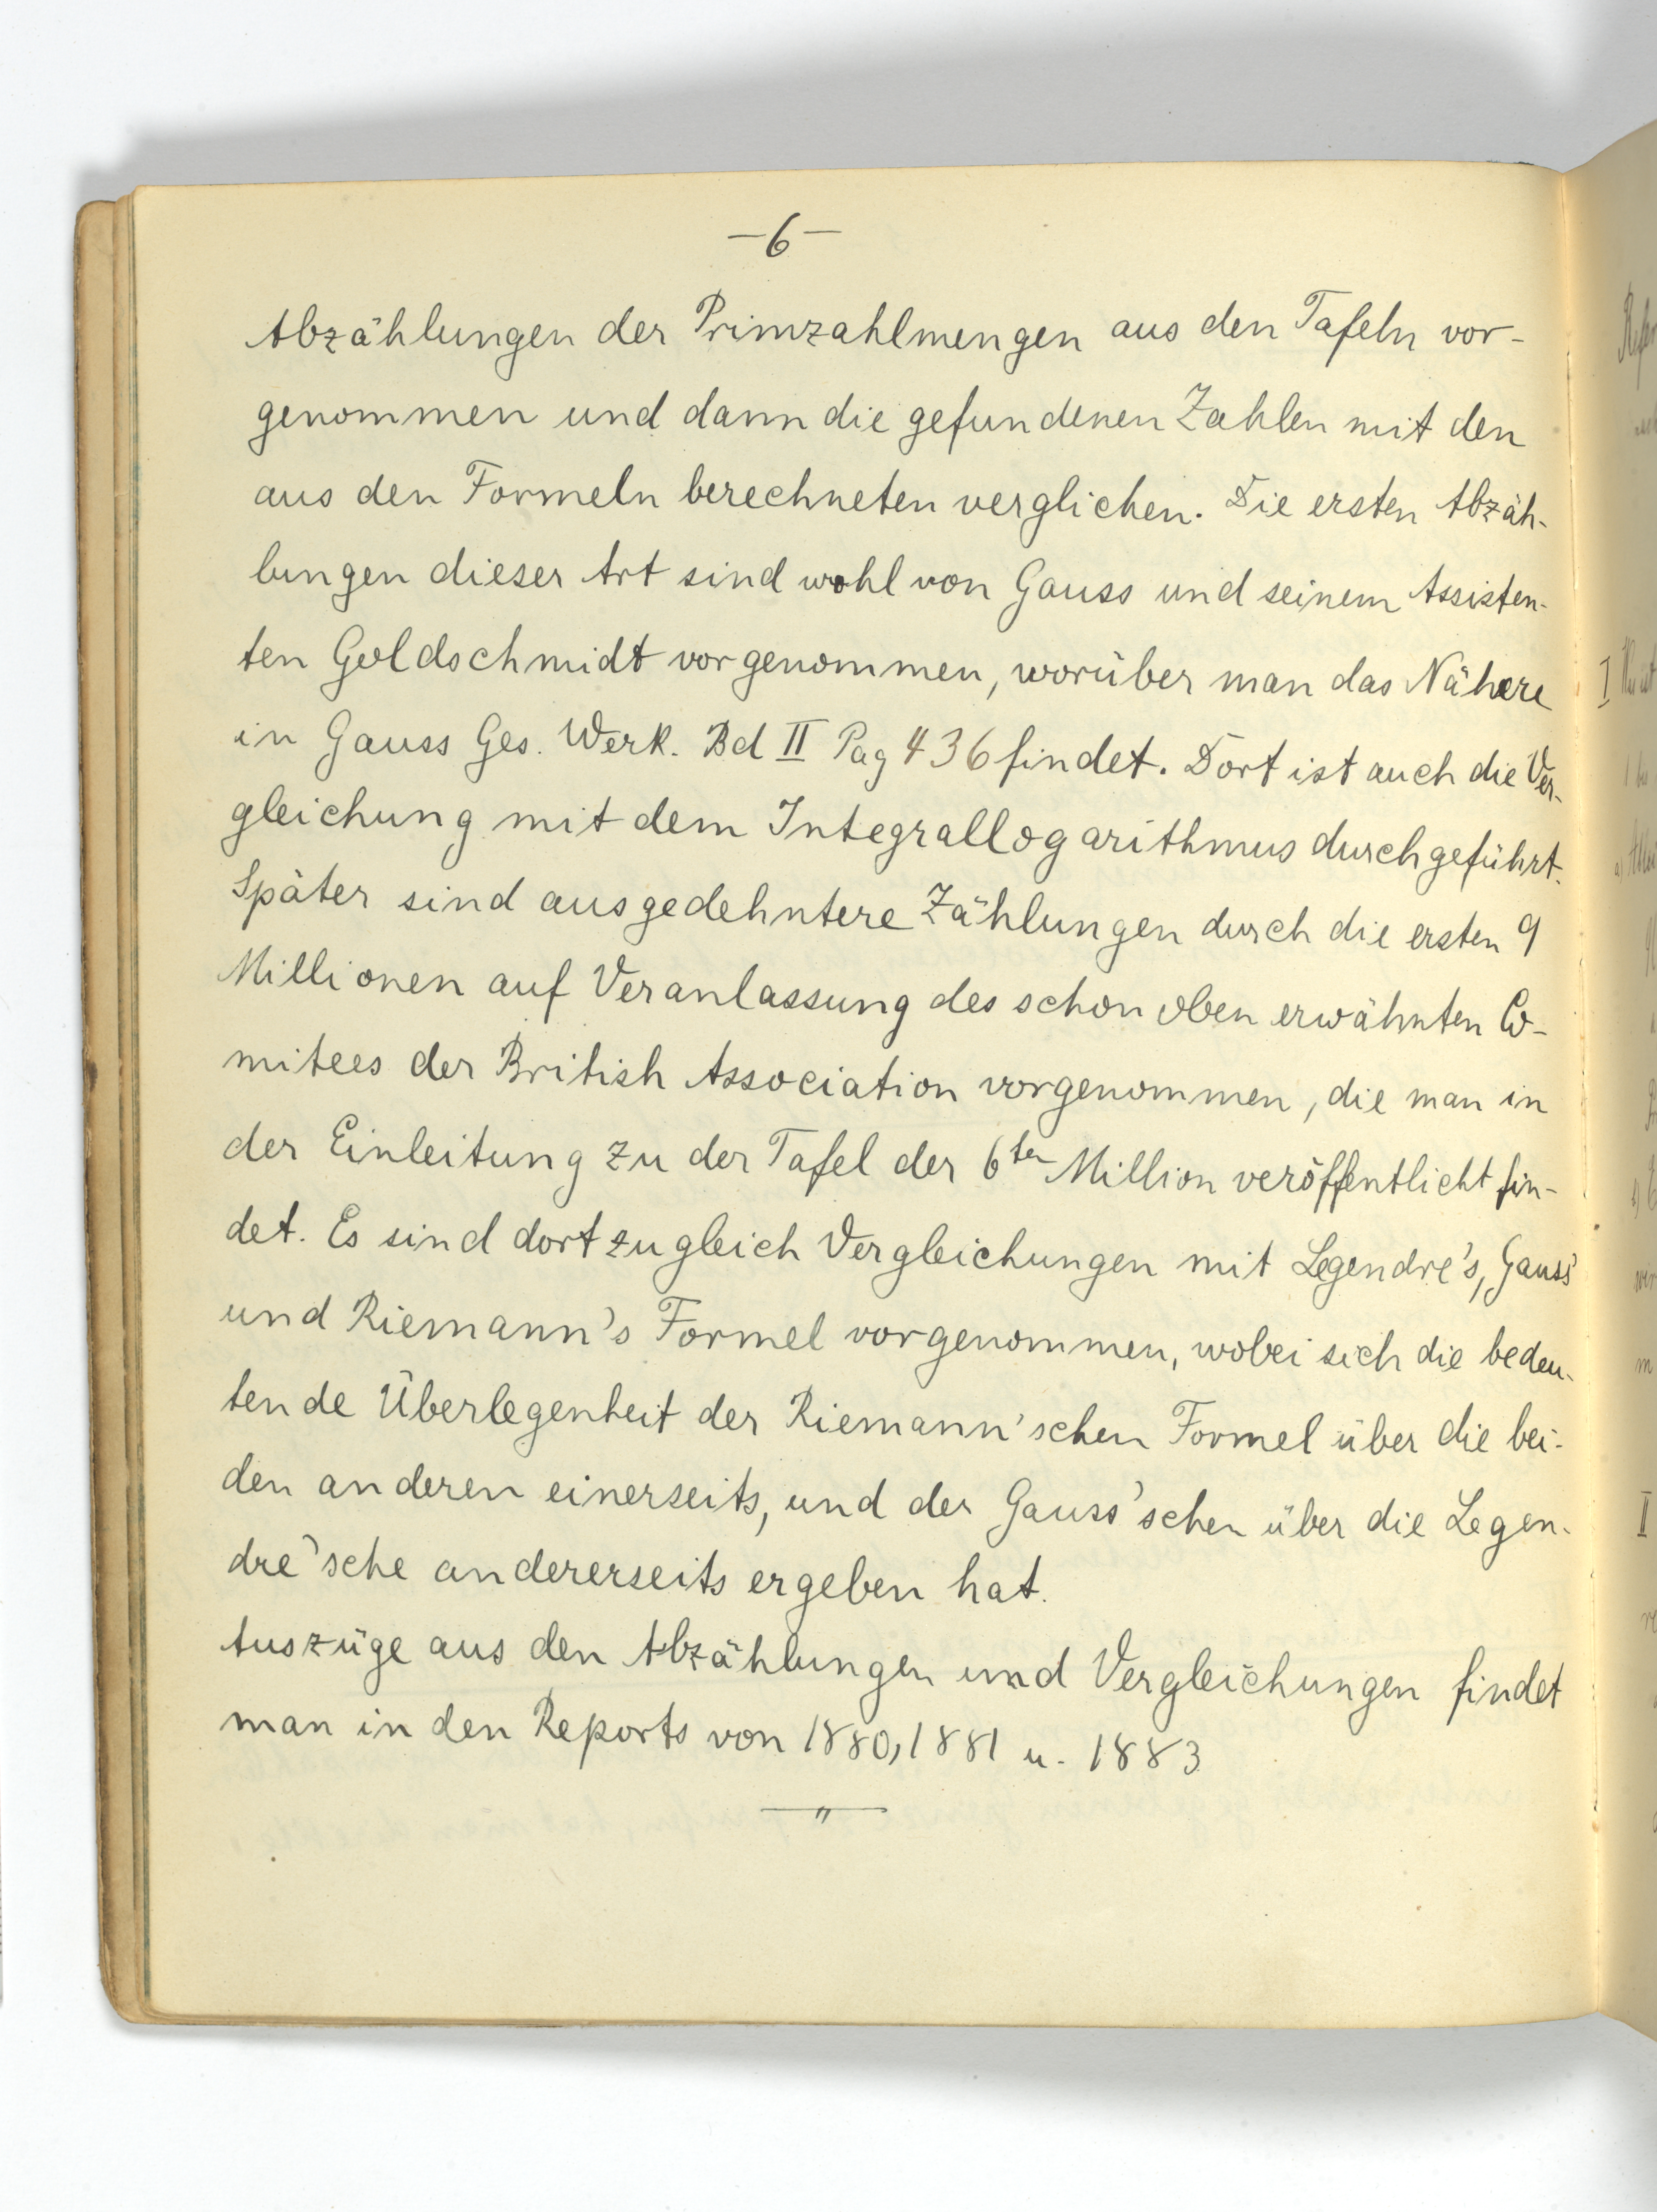 -6-
Abzählungen der Primzahlmengen aus den Tafeln vor-
genommen und dann die gefundenen Zahlen mit den
aus den Formeln berechneten verglichen. Die ersten Abzäh-
lungen dieser Art sind wohl von Gauss und seinem Assisten-
ten Goldschmidt vorgenommen, worüber man das Nähere
in Gauss Ges. Werk. Bd II Pag 436 findet. Dort ist auch die Ver-
gleichung mit dem Integrallogarithmus durchgeführt.
Später sind ausgedehntere Zählungen durch die ersten 9
Millionen auf Veranlassung des schon oben erwähnten Co-
mitees der British Association vorgenommen, die man in
der Einleitung zu der Tafel der 6ten Million veröffentlicht fin-
det. Es sind dort zugleich Vergleichungen mit Legendre's, Gauss'
und Riemann's Formel vorgenommen, wobei sich die bedeu-
tende Überlegenheit der Riemann'schen Formel über die bei-
den anderen einerseits, und der Gauss'schen über die Legen-
dre'sche andererseits ergeben hat.
Auszüge aus den Abzählungen und Vergleichungen findet
man in den Reports von 1880, 1881 u. 1883
I
II